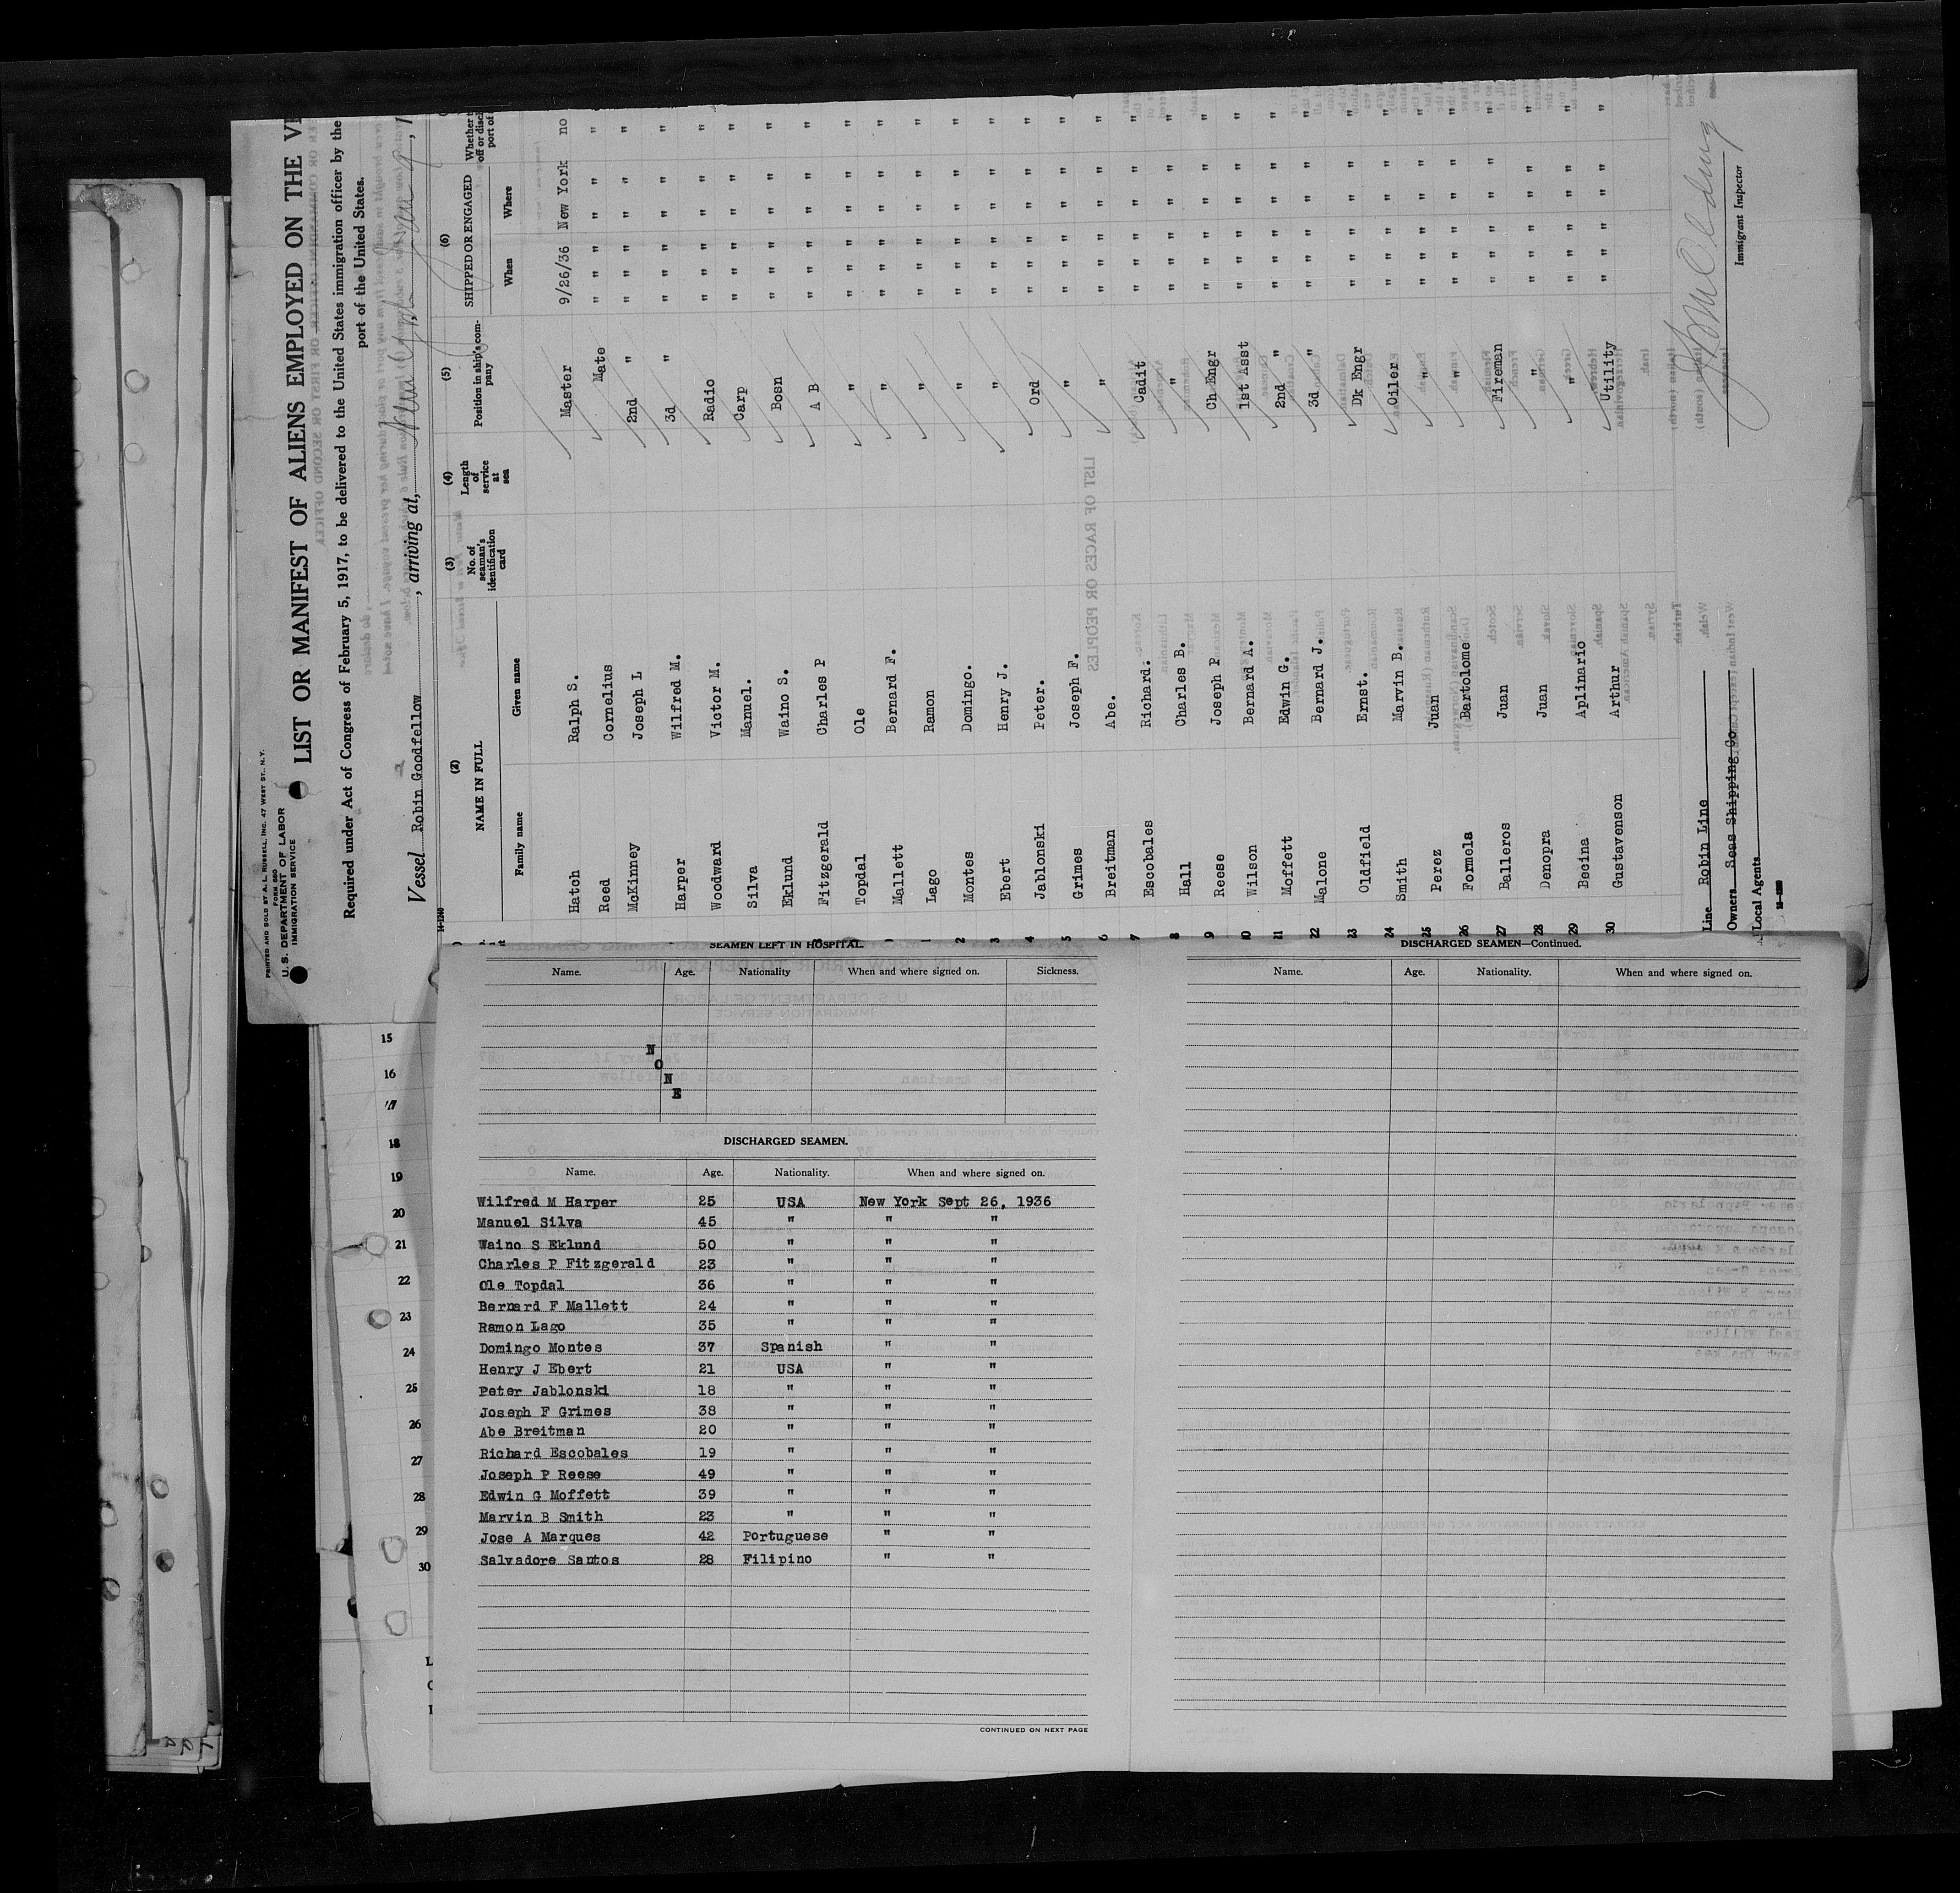 PRINTED AND SOLD BY A. L. RUSSELL, INC. 47 WEST ST., N.Y.
FORM 680
U. S. DEPARTMENT OF LABOR
IMMIGRATION SERVICE
LIST OR MANIFEST OF ALIENS EMPLOYED ON THE
Required under Act of Congress of February 5, 1917, to be delivered to the United States immigration officer by the
port of the United States.
Vessel Robin Goodfellow, arriving at,
(2) (3) (4) (5) (6)
NAME IN FULL No. of seaman's identification card Length of service at sea Position in ship's company SHIPPED OR ENGAGED Whether
Family name Given name When Where
Hatch Ralph S. Master 9/26/36 New York no
Reed Cornelius Mate " " " " " "
McKinney Joseph L 2nd " " " " " " "
Harper Wilfred M. 3d " " " " " " "
Woodward Victor M. Radio " " " " " "
Silva Manuel. Carp " " " " " "
Eklund Waino S. Bosn " " " " " "
Fitzgerald Charles P A B " " " " " "
Topdal Ole " " " " " " "
Mallett Bernard F. " " " " " " "
Lago Ramon " " " " " " "
2 Montes Domingo. " " " " " " "
3 Ebert Henry J. " " " " " " "
4 Jablonski Peter. Ord " " " " " "
5 Grimes Joseph F. " " " " " " "
6 Breitman Abe. " " " " " " "
7 Escobales Richard. Cadit " " " " " "
8 Hall Charles B. " " " " " " "
9 Reese Joseph P Ch Engr " " " " " "
10 Wilson Bernard A. 1st Asst " " " " " "
21 Moffett Edwin G. 2nd " " " " " " "
22 Malone Bernard J. 3d " " " " " " "
23 Oldfield Ernst. Dk Engr " " " " " "
24 Smith Marvin B. Oiler " " " " " "
25 Perez Juan " " " " " " "
26 Formela Bartolome " " " " " " "
27 Balleros Juan Fireman " " " " " "
28 Denopra Juan " " " " " " "
29 Becina Aplinario " " " " " " "
30 Gustavenson Arthur Utility " " " " " "
Line Robin Line
Owners Seas Shipping Co
Local Agents
Immigrant Inspector
SEAMEN LEFT IN HOSPITAL.
Name. Age. Nationality When and where signed on. Sickness.
N
O
N
E
DISCHARGED SEAMEN.
Name. Age. Nationality. When and where signed on.
Wilfred M Harper 25 USA New York Sept 26, 1936
Manuel Silva 45 " " "
Waino S Eklund 50 " " "
Charles P Fitzgerald 23 " " "
Ole Topdal 36 " " "
Bernard F Mallett 24 " " "
Ramon Lago 35 " " "
Domingo Montes 37 Spanish " "
Henry J Ebert 21 USA " "
Peter Jablonski 18 " " "
Joseph F Grimes 38 " " "
Abe Breitman 20 " " "
Richard Escobales 19 " " "
Joseph P Reese 49 " " "
Edwin G Moffett 39 " " "
Marvin B Smith 23 " " "
Jose A Marques 42 Portuguese " "
Salvadore Santos 28 Filipino " "
CONTINUED ON NEXT PAGE
DISCHARGED SEAMEN—Continued.
Name. Age. Nationality. When and where signed on.
15
16
17
18
19
20
21
22
23
24
25
26
27
28
29
30